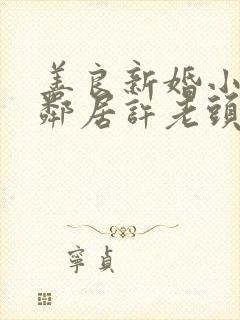 善良新婚小
鄰居許老頭
寧貞